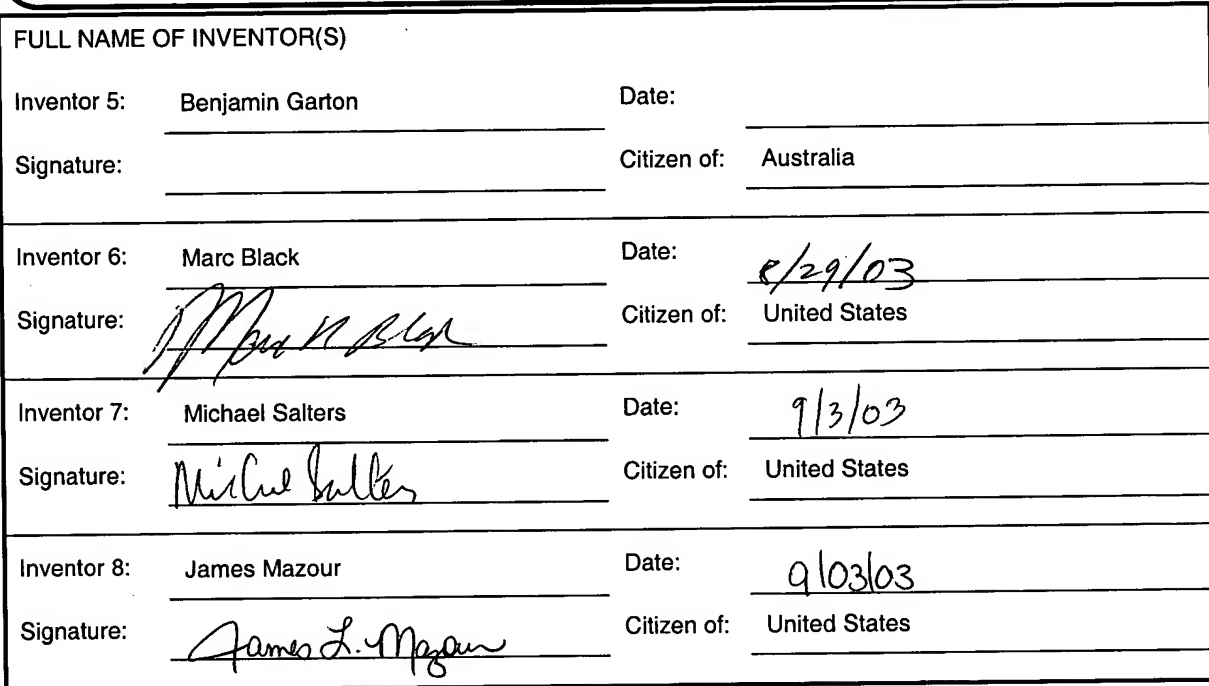 FULL NAME OF INVENTOR(S)
Inventor 5: Benjamin Garton Date:
Signature: Citizen of: Australia
Inventor 6: Marc Black Date: 8/29/03
Signature: Marc R Black Citizen of: United States
Inventor 7: Michael Salters Date: 9/3/03
Signature: Michael Salters Citizen of: United States
Inventor 8: James Mazour Date: 9/03/03
Signature: James L. Mazour Citizen of: United States